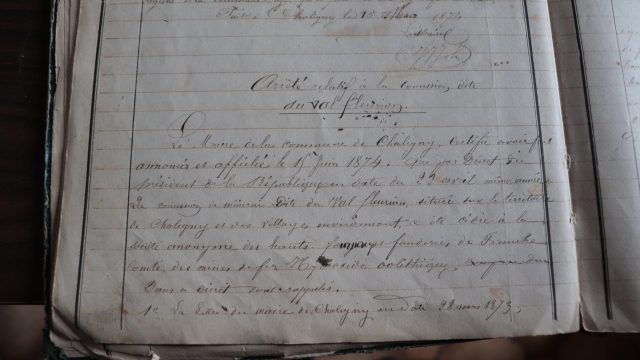 Fait à Chaligny le 15 Mars 1874
Arrêté relatif à la concession dite
du Val fleurion.
Le Maire de la commune de Chaligny, certifie avoir fait
annoncer et afficher le 15 Juin 1874. Que par Décret du
président de la République en date du 23 avril même année
La concession de minerai dite du Val fleurion, située sur le territoire
de Chaligny et des villages environnant, a été cédée à la
société anonyme des hauts fourneaux fonderies de Franche
Comté, des mines de fer Hydroxidé oolithique,
Dans le décret sous rappelés.
1° La lettre du maire de Chaligny en date 28 mars 1873,